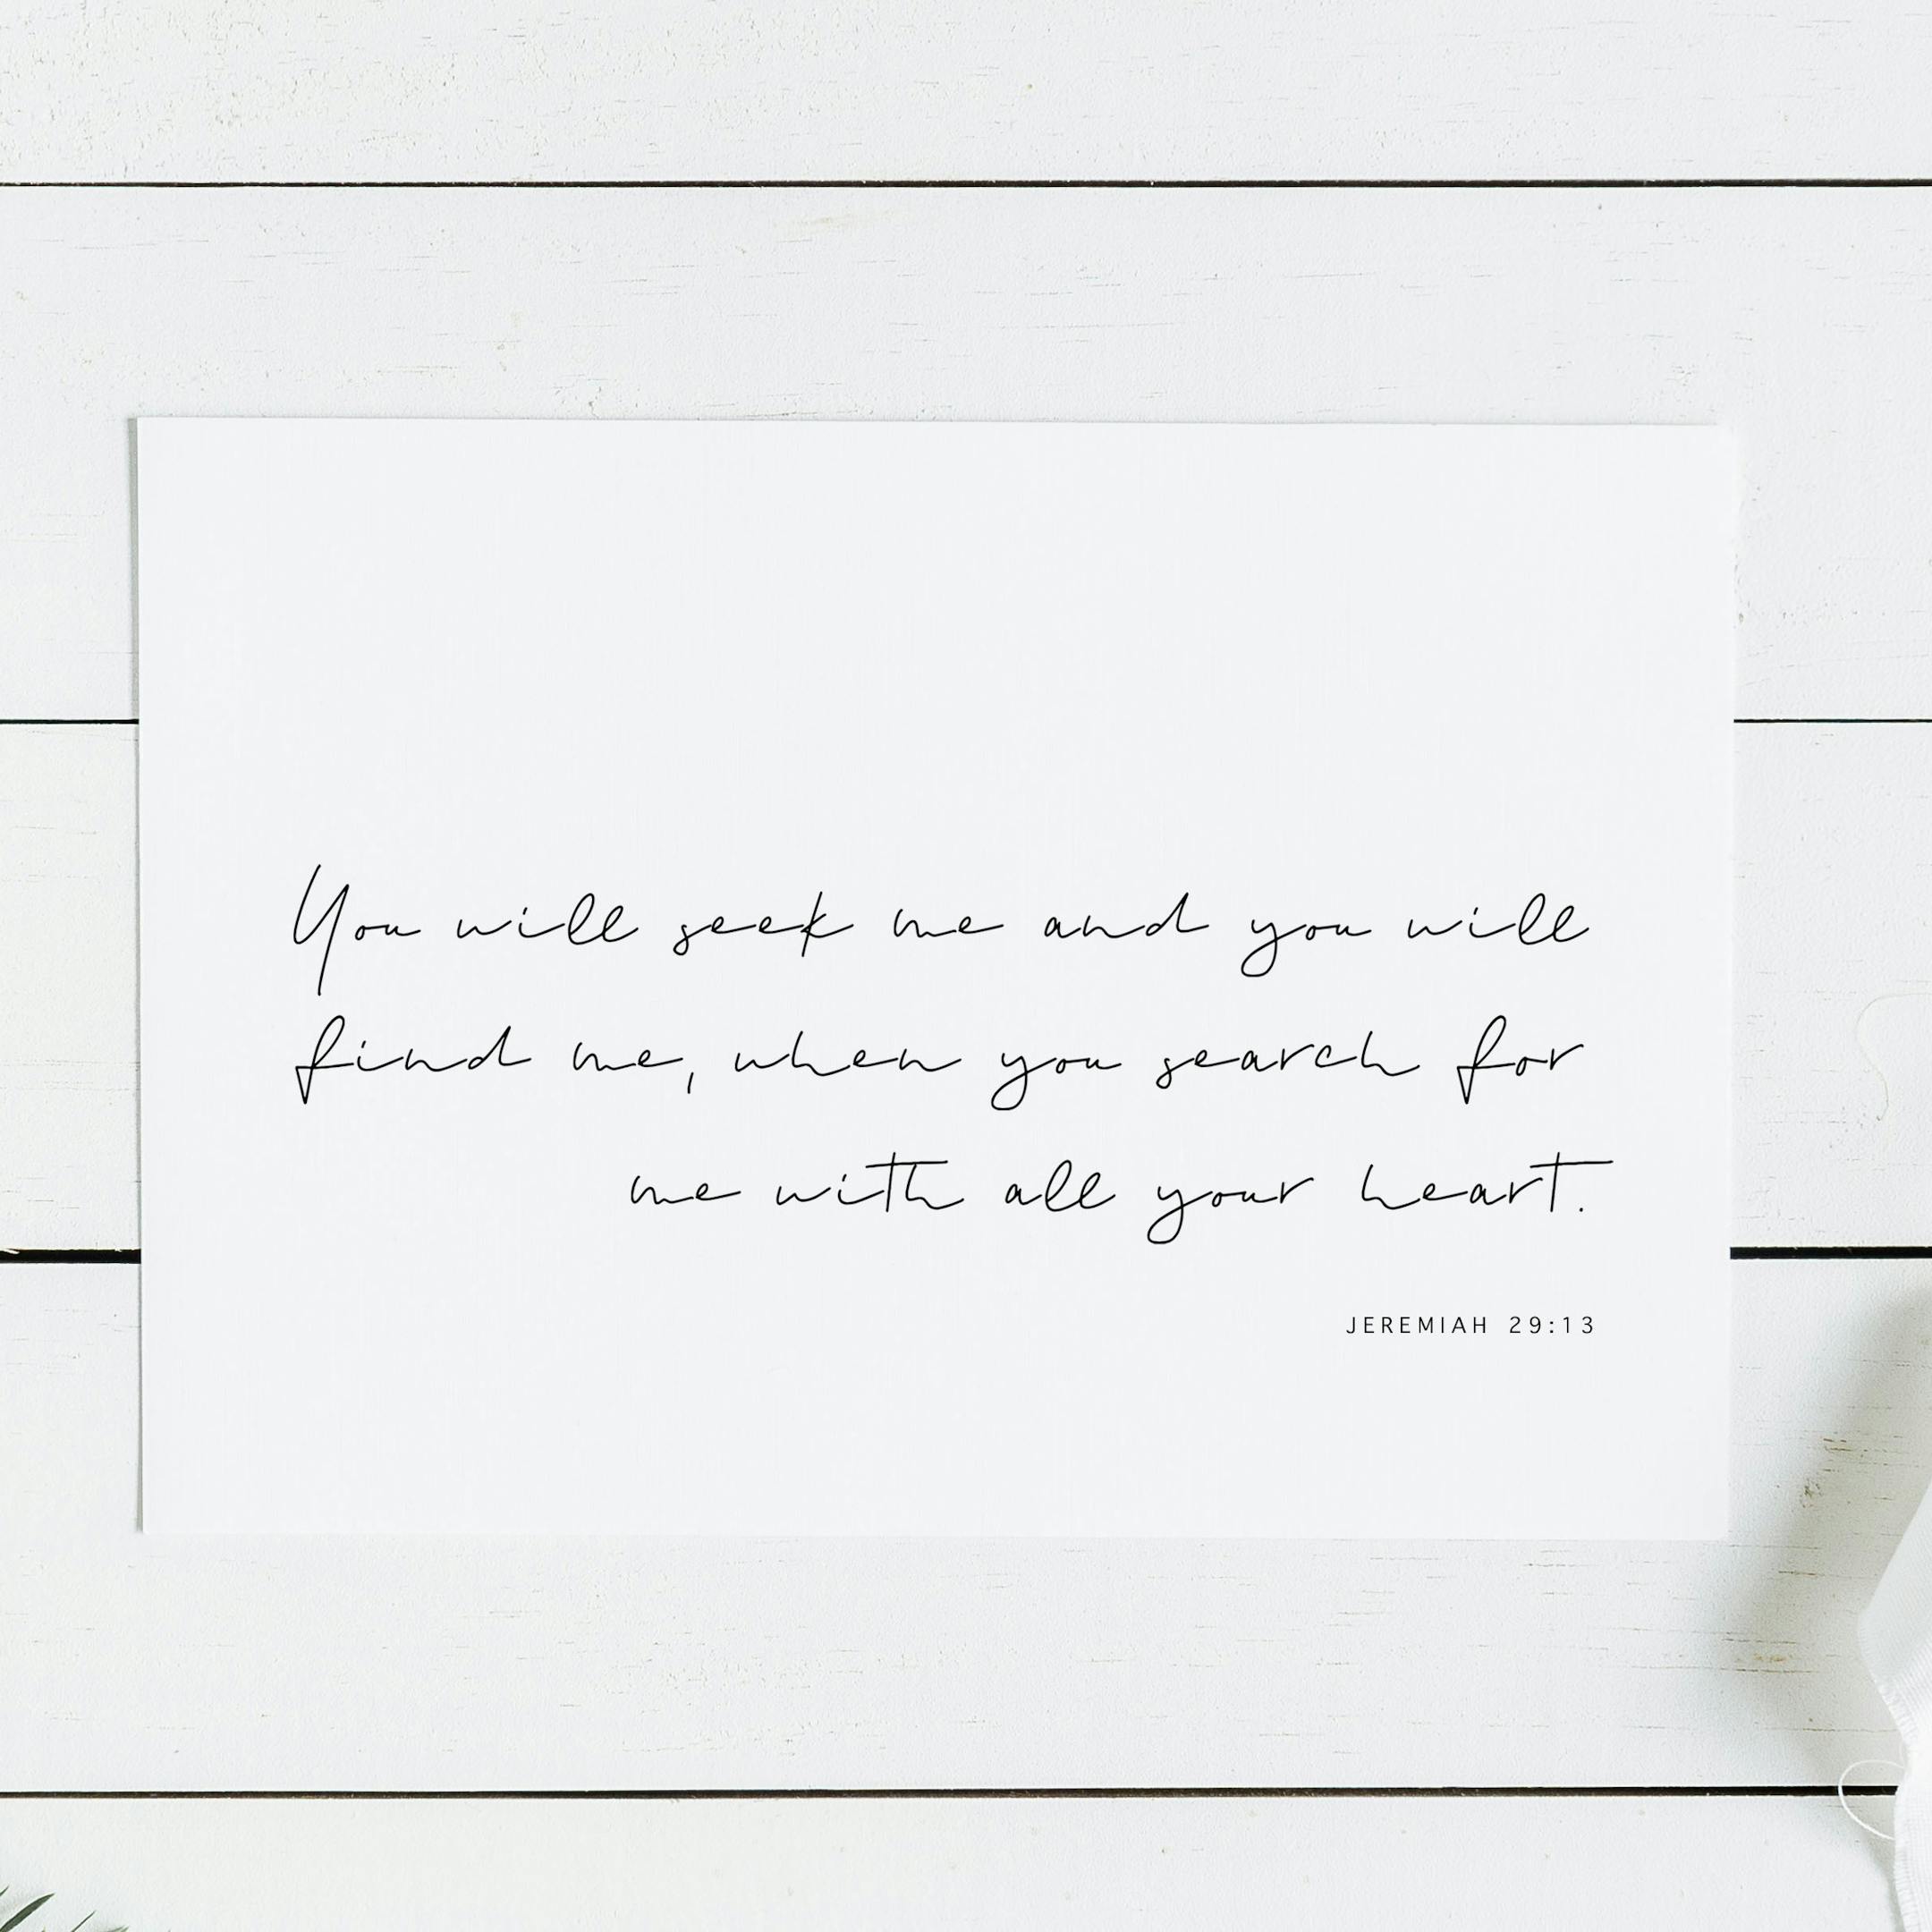 You will seek me and you will
find me, when you search for
me with all your heart.
JEREMIAH 29:13